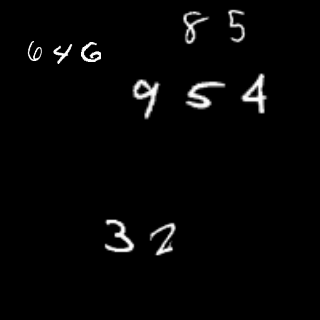 85
646
954
32